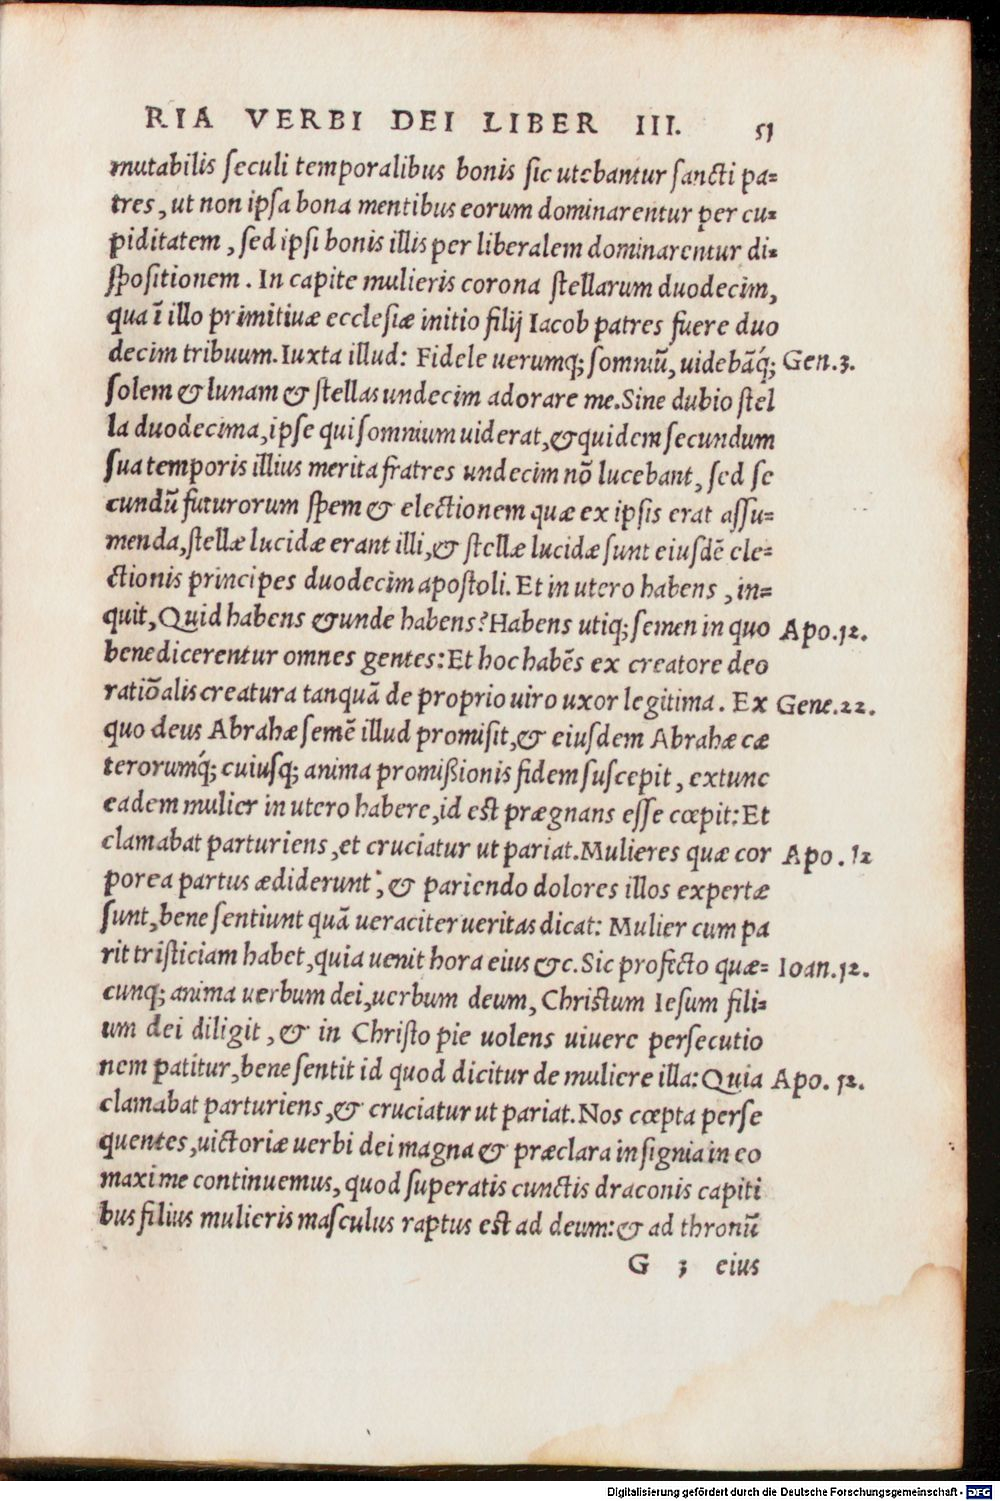 RIA VERBI DEI LIBER III. 51
mutabilis seculi temporalibus bonis sic utebantur sancti pa=
tres, ut non ipsa bona mentibus eorum dominarentur per cu=
piditatem, sed ipsi bonis illis per liberalem dominarentur di=
spositionem. In capite mulieris corona stellarum duodecim,
qua ī illo primitiuæ ecclesiæ initio filij Iacob patres fuere duo
decim tribuum. Iuxta illud: Fidele uerumq; somniũ, uidebãq́; Gen.3.
solem & lunam & stellas undecim adorare me. Sine dubio stel
la duodecima, ipse qui somnium uiderat, & quidem secundum
sua temporis illius merita fratres undecim nõ lucebant, sed se
cundũ futurorum spem & electionem quæ ex ipsis erat assu=
menda, stellæ lucidæ erant illi, & stellæ lucidæ sunt eiusdẽ ele=
ctionis principes duodecim apostoli. Et in utero habens, in=
quit, Quid habens & unde habens? Habens utiq; semen in quo Apo.12.
benedicerentur omnes gentes: Et hoc habẽs ex creatore deo
ratiõalis creatura tanquã de proprio uiro uxor legitima. Ex Gene.22.
quo deus Abrahæ semẽ illud promisit, & eiusdem Abrahæ cæ
terorumq́; cuiusq; anima promißionis fidem suscepit, extunc
eadem mulier in utero habere, id est prægnans esse cœpit: Et
clamabat parturiens, et cruciatur ut pariat. Mulieres quæ cor Apo. 12
porea partus ædiderunt, & pariendo dolores illos expertæ
sunt, bene sentiunt quã ueraciter ueritas dicat: Mulier cum pa
rit tristiciam habet, quia uenit hora eius &c. Sic profecto quæ= Ioan.12.
cunq; anima uerbum dei, uerbum deum, Christum Iesum fili=
um dei diligit, & in Christo pie uolens uiuere persecutio
nem patitur, bene sentit id quod dicitur de muliere illa: Quia Apo. 12.
clamabat parturiens, & cruciatur ut pariat. Nos cœpta perse
quentes, uictoriæ uerbi dei magna & præclara insignia in eo
maxime continuemus, quod superatis cunctis draconis capiti
bus filius mulieris masculus raptus est ad deum: & ad thronũ
G 3 eius
Digitalisierung gefördert durch die Deutsche Forschungsgemeinschaft - DFG